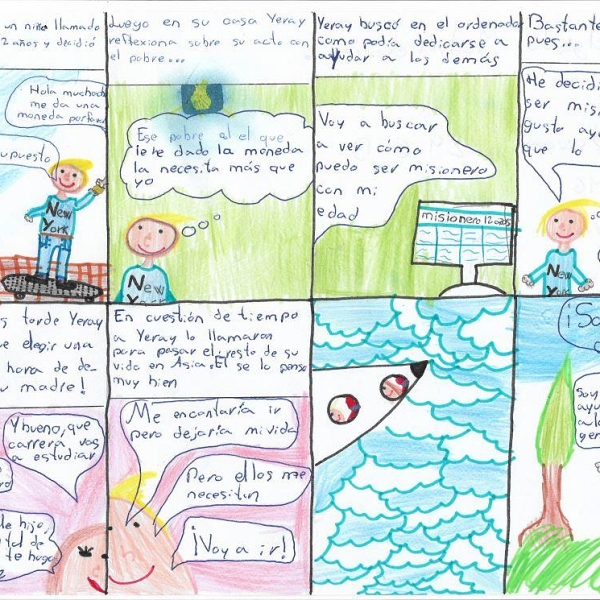 un niño llamado
2 años y decidió
Hola muchacho
me da una
moneda porfavor
upuesto
New
York
Luego en su casa Yeray
reflexiona sobre su acto con
el pobre...
Ese pobre al el que
le he dado la moneda
la necesita más que
yo
New
York
Yeray buscó en el ordenador
como podía dedicarse a
ayudar a los demás
Voy a buscar
a ver cómo
puedo ser misionero
con mi
edad
misionero 12 años
Bastante
pues...
He decidi
ser misi
gusta ayu
que lo
New
Yo
s tarde Yeray
que elegir una
hora de de-
u madre!
Y bueno, que
carrera vas
a estudiar
de hijo,
te haga
En cuestión de tiempo
a Yeray lo llamaron
para pasar el resto de su
vida en Asia. Él se lo pensó
muy bien
Me encantaría ir
pero dejaría mi vida
Pero ellos me
necesitan
¡Voy a ir!
¡So
Soy
ayu
a la
gen